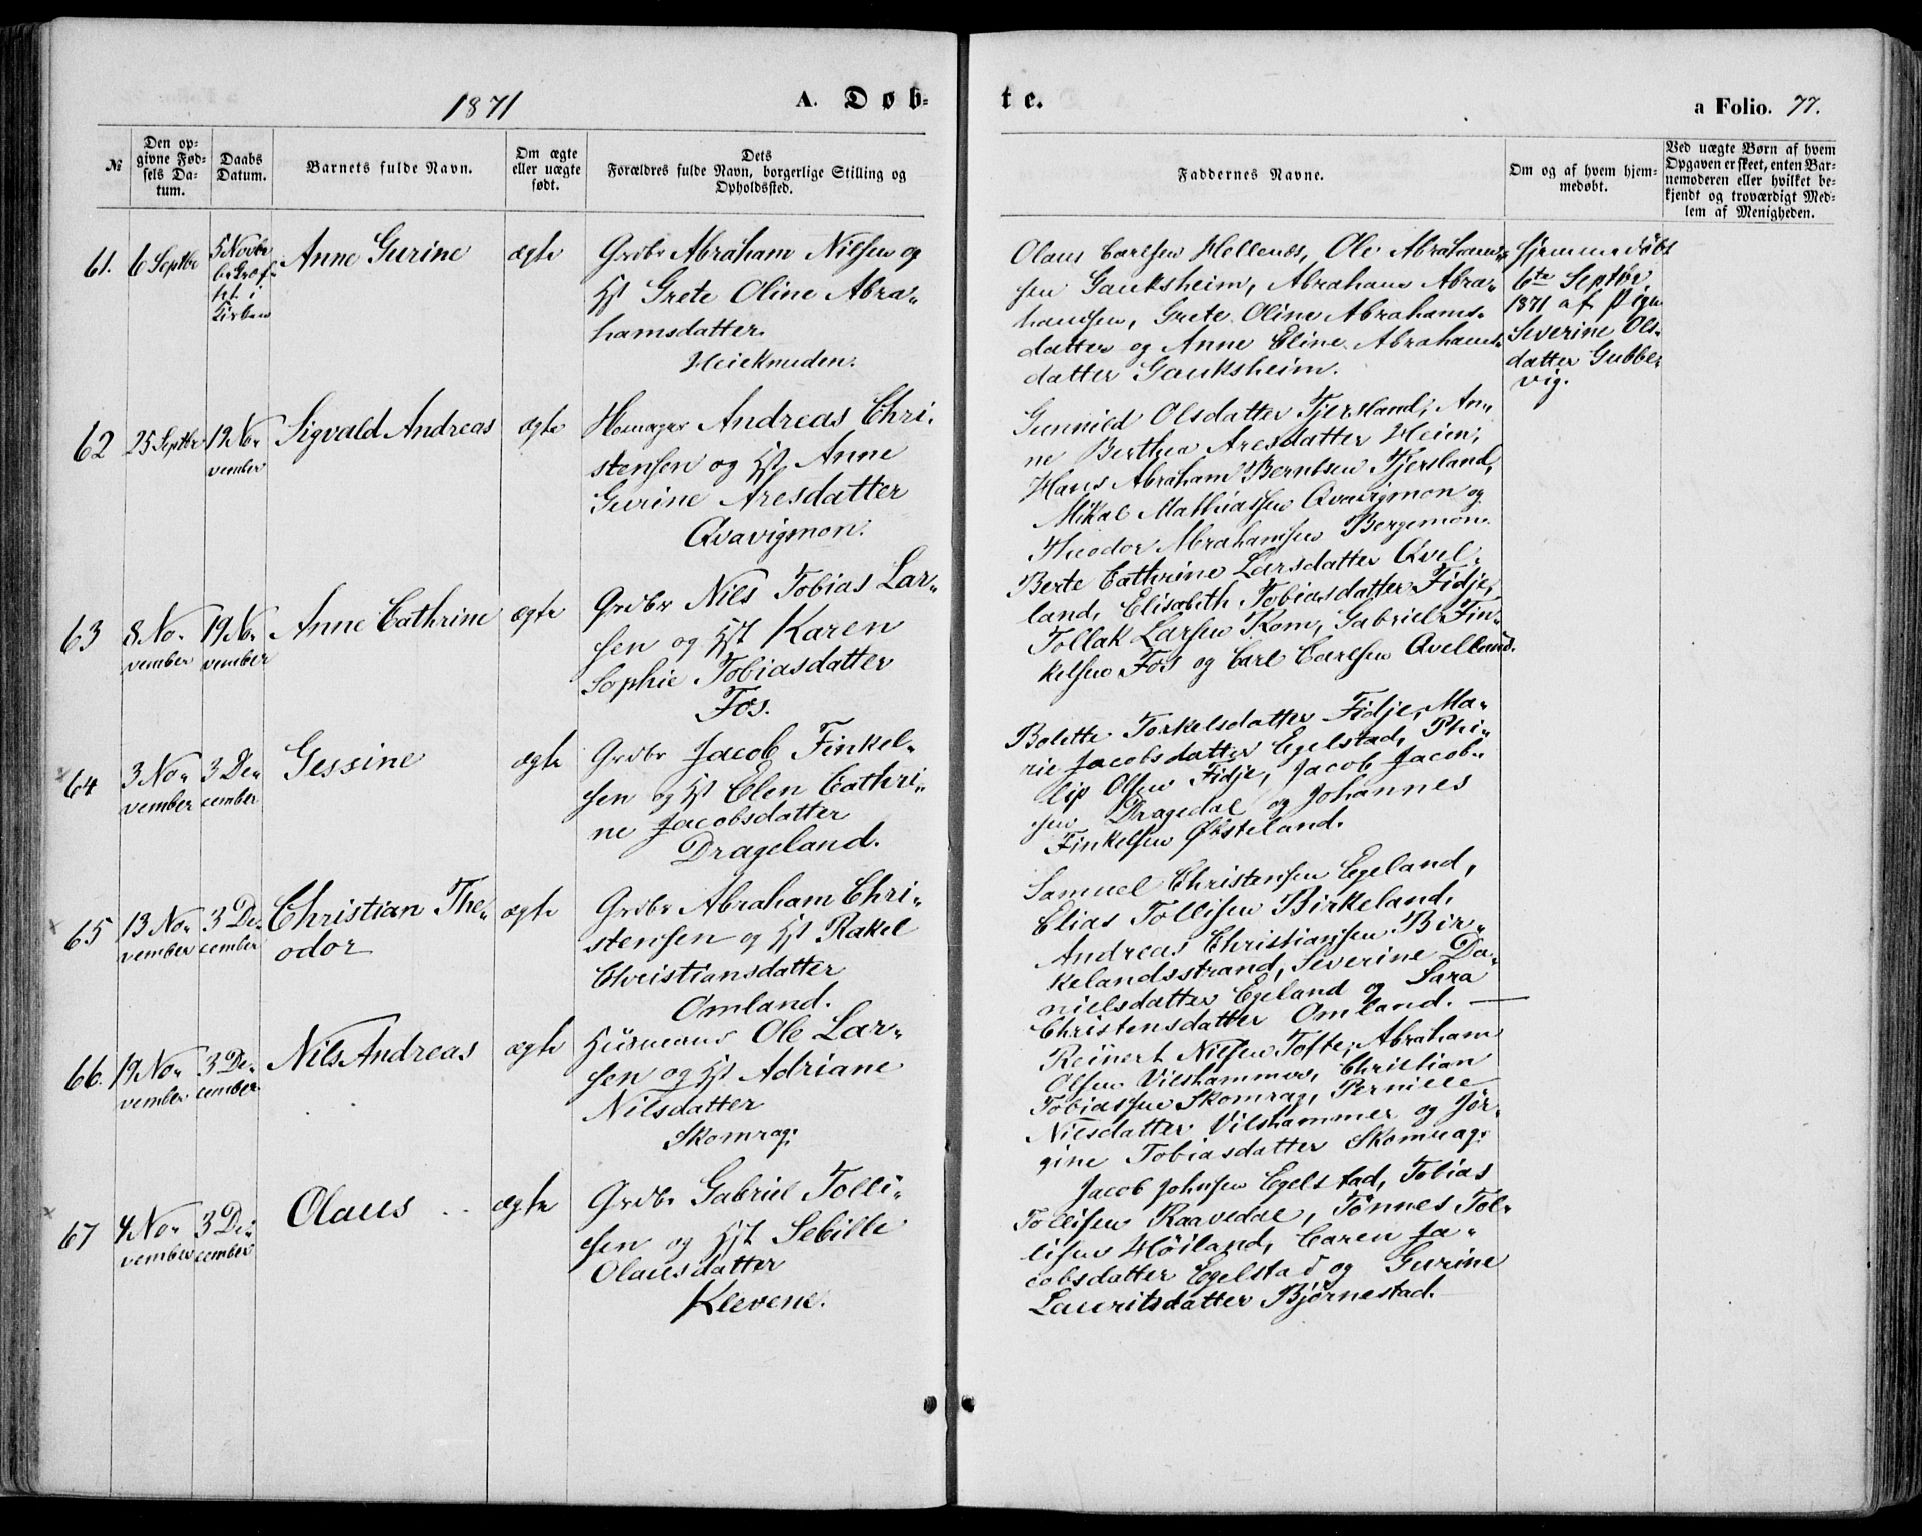 1871
A. Døb-
te.
a Folio. 77.
№
Den op-
givne Fød-
sels Da-
tum.
Daabs
Datum.
Barnets fulde Navn.
Om ægte
eller uægte
født.
Dets
Forældres fulde Navn, borgerlige Stilling og
Opholdssted.
Faddernes Navne.
Om og af hvem hjem-
medøbt.
Ved uægte Børn af hvem
Opgaven er skeet, enten Bar-
nemoderen eller hvilket be-
kjendt og troværdigt Med-
lem af Menigheden.
61.
6 Septbr
5 Novbr
bekræf-
tet i
Kirken
Anne Gurine
ægte
Grdbr Abraham Nilsen og
Hst Grete Oline Abra-
hamsdatter.
Heieknuden.
Olaus Carlsen Hellenes, Ole Abraham-
sen Gauksheim, Abraham Abra-
hamsen, Grete Oline Abrahams-
datter og Anne Eline Abrahams-
datter Gauksheim.
Hjemmedøbt
6te Septbr
1871 af Pige
Severine Ols-
datter Gubbe-
vig.
62
25 Septbr
19 No-
vember
Sigvald Andreas
ægte
Andreas Chri-
stensen og Hst Anne
Gurine Aresdatter
Qvavigmon.
Gunnild Olsdatter Tjersland, An-
ne Berthea Aresdatter Heien,
Hans Abraham Berntsen Tjersland,
Mikal Mathiassen Qvavigmon og
Theodor Abrahamsen Bergemon.
63
8 No-
vember
19 No-
vember
Anne Cathrine
ægte
Grdbr Nils Tobias Lar-
sen og Hst Karen
Sophie Tobiasdatter
Fos.
Berte Cathrine Larsdatter Qvel-
land, Elisabeth Tobiasdatter Fidje,
Tollak Larsen Rom, Gabriel Fin-
kelsen Fos og Carl Carlsen Qvelland.
64
3 No-
vember
3 De-
cember
Gessine
ægte
Grdbr Jacob Finkel-
sen og Hst Elen Cathri-
ne Jacobsdatter
Drageland.
Bolette Torkelsdatter Fidje, Ma-
rie Jacobsdatter Egelstad, Phi-
lip Olsen Fidje, Jacob Jacob-
sen Dragedal og Johannes
Finkelsen Østeland.
65
13 No-
vember
3 De-
cember
Christian The-
odor
ægte
Grdbr Abraham Chri-
stensen og Hst Rakel
Christiansdatter
Omland.
Samuel Christensen Egeland,
Elias Tollisen Birkeland,
Andreas Christiansen Bir-
kelandsstrand, Severine Da-
nielsdatter Egeland og Sara
Christensdatter Omland.
66.
19 No-
vember
3 De-
cember
Nils Andreas
ægte
Husmand Ole Lar-
sen og Hst Adriane
Nilsdatter
Skomrag.
Reinert Nilsen Tofte, Abraham
Olsen Vilshammer, Christian
Tobiassen Skomrag, Pernille
Nilsdatter Vilshammer og Jør-
gine Tobiasdatter Skomrag.
67
4 No-
vember
3 De-
cember
Olaus
ægte
Grdbr Gabriel Tolli-
sen og Hst Sebille
Olausdatter
Klevene.
Jacob Johnsen Egelstad, Tobias
Tollisen Raavedal, Tønnes Tol-
lisen Høiland, Caren Ja-
cobsdatter Egelstad og Gurine
Lauritsdatter Bjørnestad.